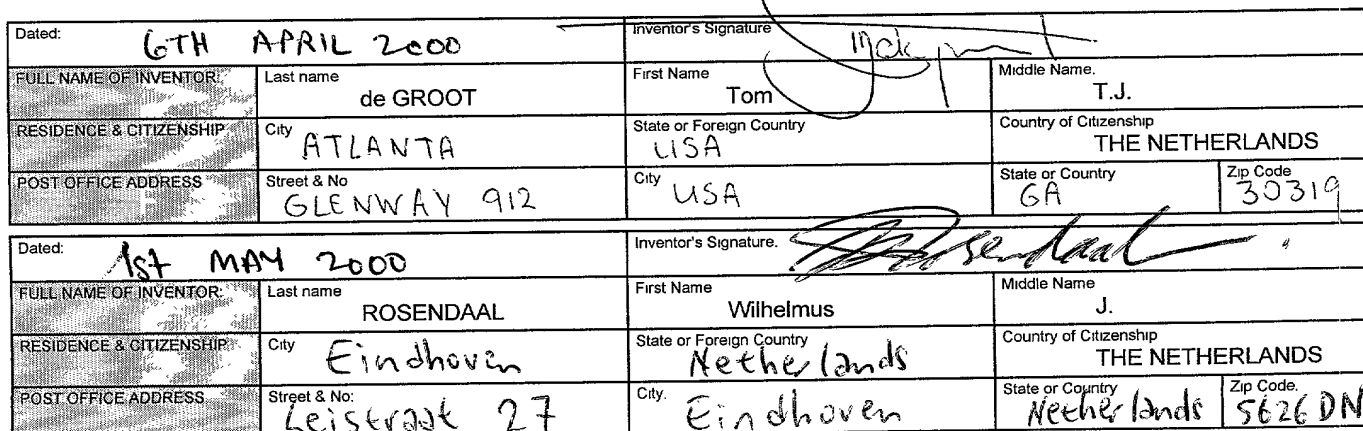 Dated: 6TH APRIL 2000 Inventor's Signature
FULL NAME OF INVENTOR: Last name de GROOT First Name Tom Middle Name. T.J.
RESIDENCE & CITIZENSHIP City ATLANTA State or Foreign Country USA Country of Citizenship THE NETHERLANDS
POST OFFICE ADDRESS Street & No GLENWAY 912 City USA State or Country GA Zip Code 30319
Dated: 1st MAY 2000 Inventor's Signature. Rosendaal
FULL NAME OF INVENTOR: Last name ROSENDAAL First Name Wilhelmus Middle Name J.
RESIDENCE & CITIZENSHIP City Eindhoven State or Foreign Country Netherlands Country of Citizenship THE NETHERLANDS
POST OFFICE ADDRESS Street & No: Leistraat 27 City. Eindhoven State or Country Netherlands Zip Code. 5626 DN